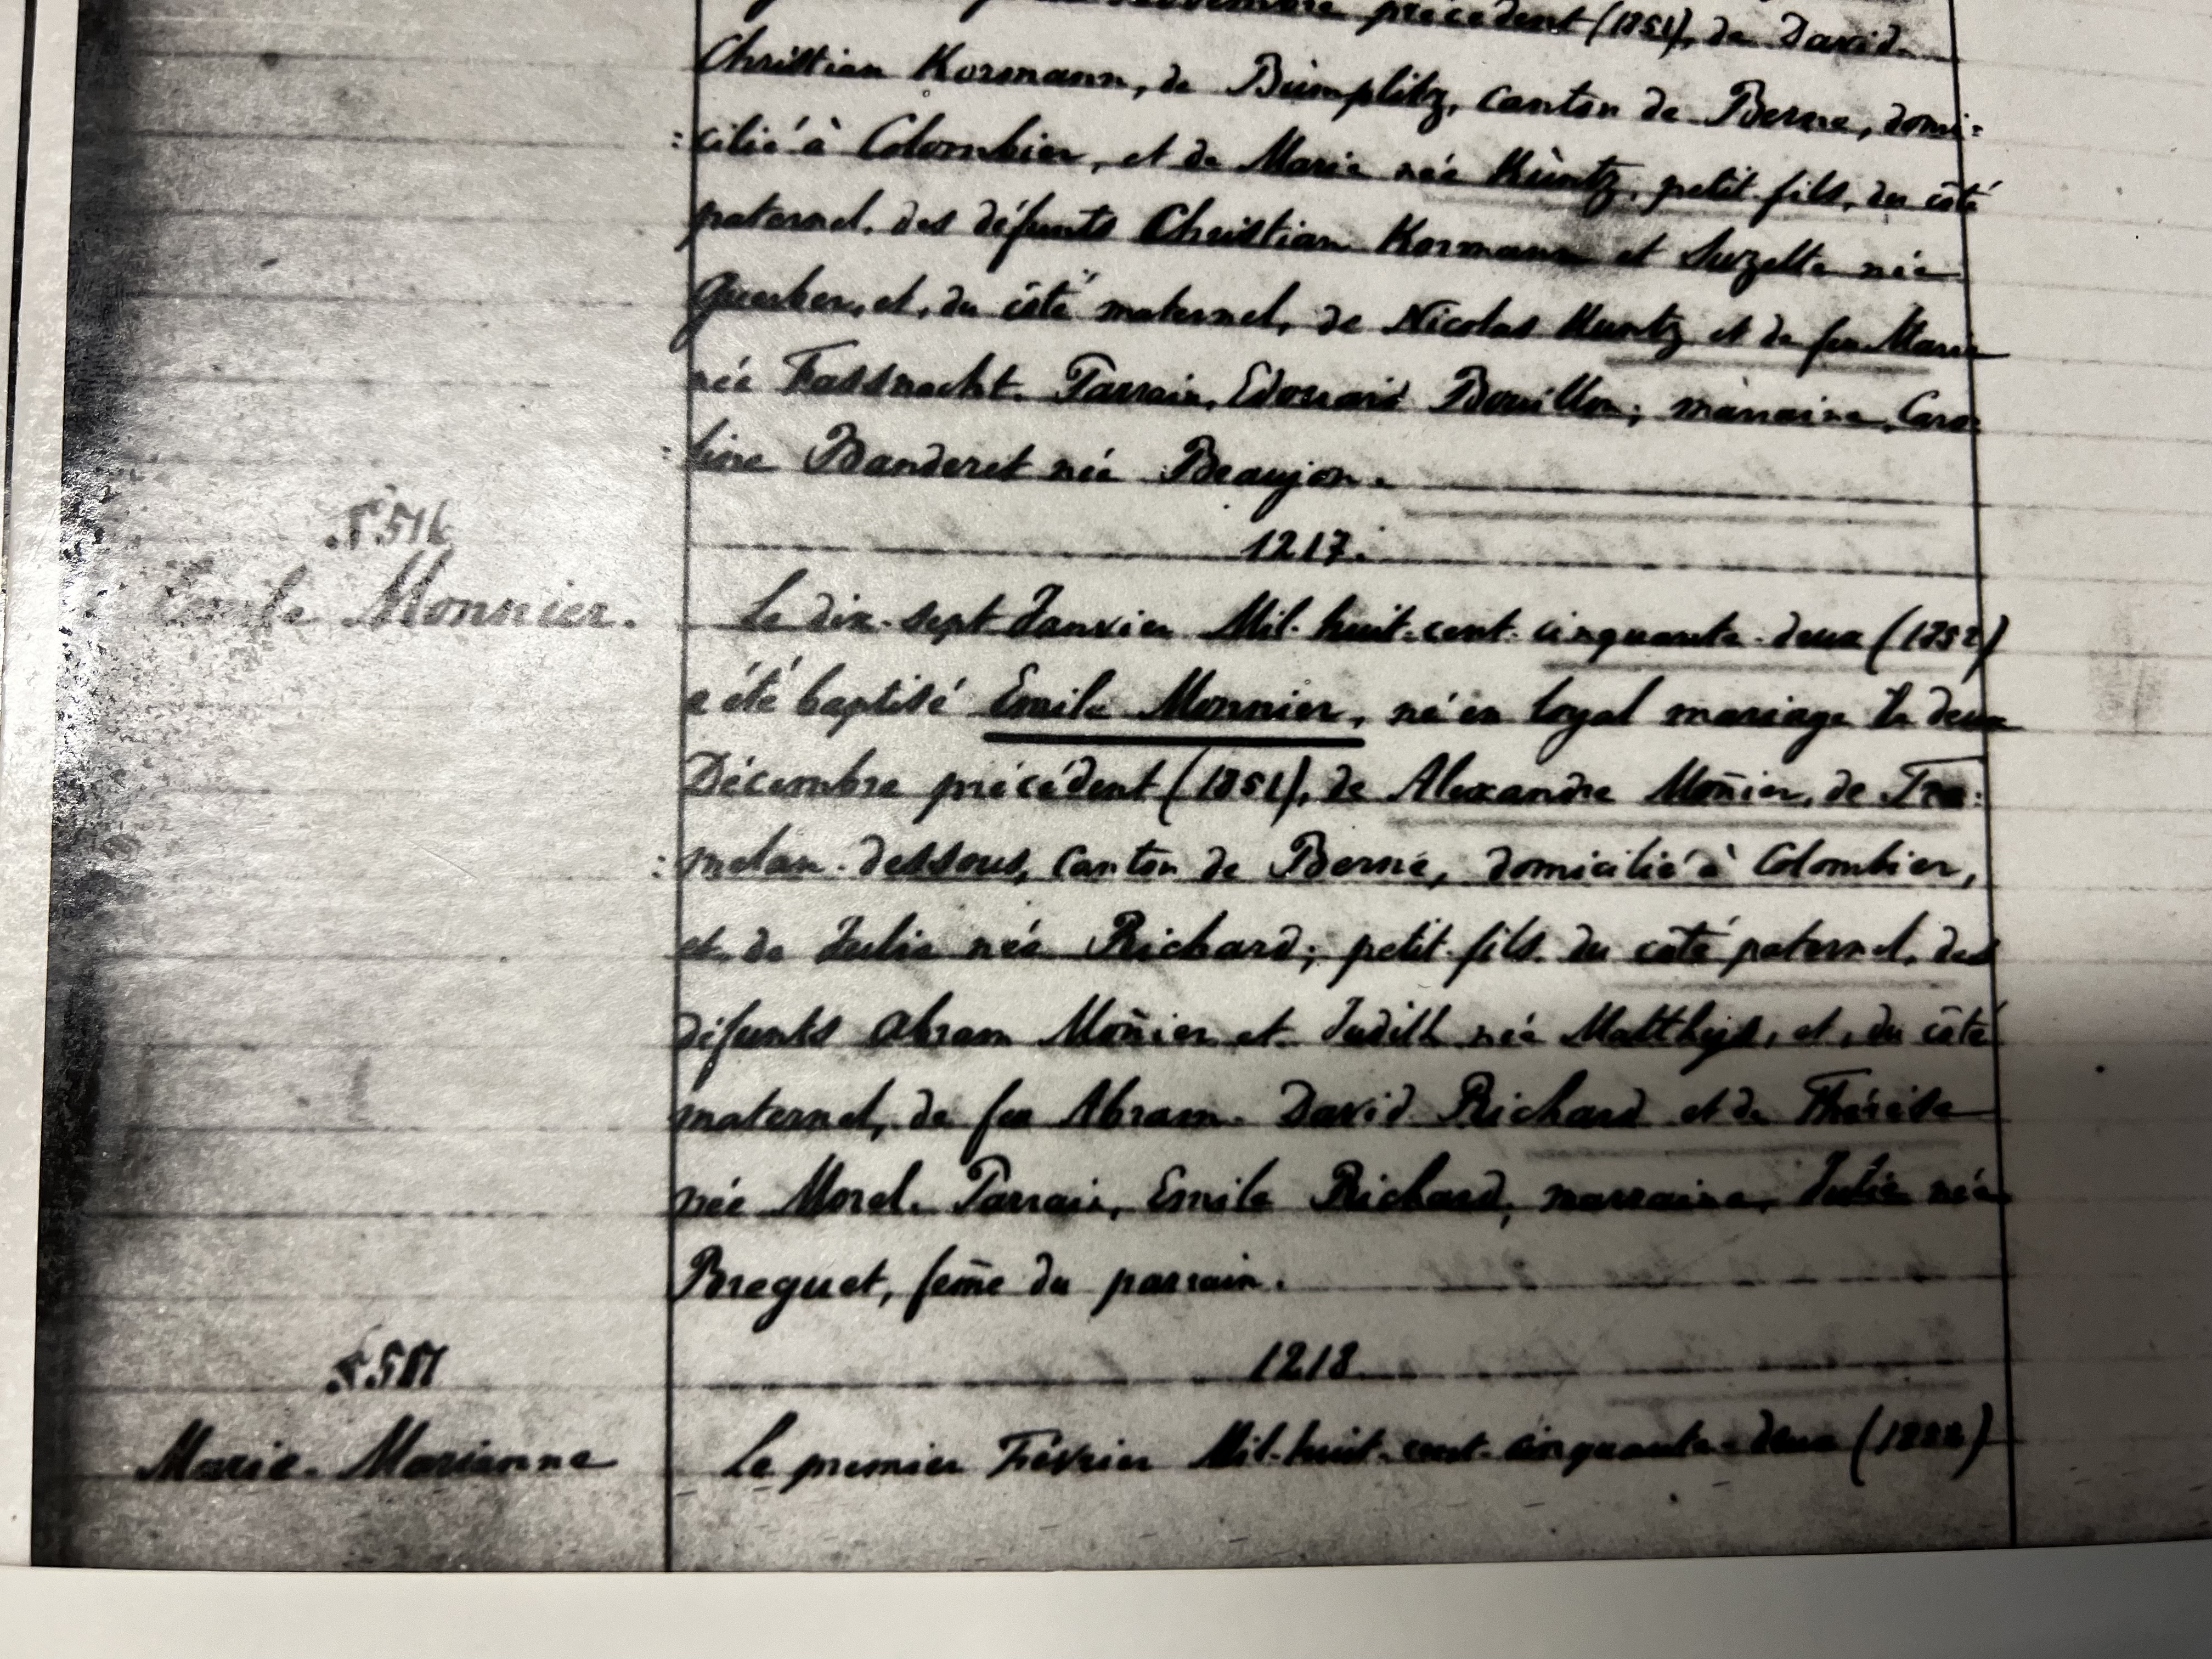 Novembre précédent (1851), de David-
Christian Kormann, de Bümplitz, Canton de Berne, domi=
=cilié à Colombier, et de Marie née Küntz, petit-fils, du côté
paternel, des défunts Christian Kormann et Suzette née
Querber, et, du côté maternel, de Nicolas Kuntz et de feu Marie
née Fassnacht. Parrain, Edouard Bouillon; marraine, Caro=
=line Banderet née Beaujon.
N° 516
Emile Monnier.
1217.
Le dix-sept Janvier Mil-huit-cent-cinquante-deux (1852)
a été baptisé Emile Monnier, né en loyal mariage le deux
Décembre précédent (1851), de Alexandre Mon̄ier, de Tra=
=melan-dessous, Canton de Berne, domicilié à Colombier,
et de Julie née Richard; petit-fils, du côté paternel, des
défunts Abram Mon̄ier et Judith née Mattheys, et, du côté
maternel, de feu Abram-David Richard et de Thérèse
née Morel. Parrain, Emile Richard; marraine, Julie née
Breguet, fem̄e du parrain.
N° 517
1218
Marie-Marianne
Le premier Février Mil-huit-cent-cinquante-deux (1852)